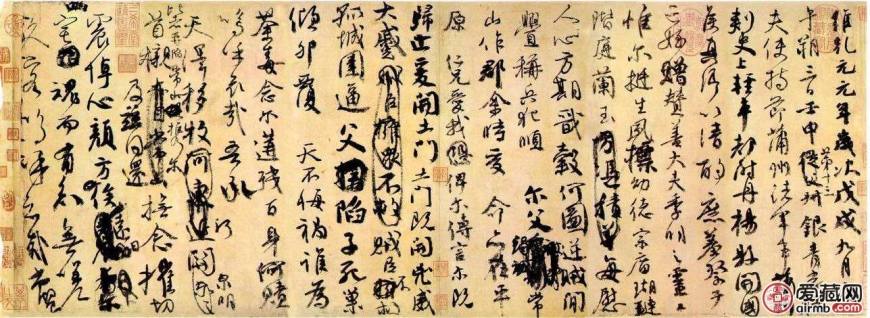 維乾元元年歲次戊戌九月
午朔三日壬申第十三叔銀青光
夫使持節蒲州諸軍事蒲州
刺史上輕車都尉丹楊縣開國
侯真卿以清酌庶羞祭于
亡姪贈贊善大夫季明之靈曰
惟爾挺生夙標幼德宗廟瑚璉
階庭蘭玉方憑積善每慰
人心方期戩穀何圖逆賊間
釁稱兵犯順爾父竭誠常
山作郡余時受命亦在平
原仁兄愛我俾爾傳言爾既
歸止爰開土門土門既開凶威
大蹙賊臣擁眾不救賊臣不救
孤城圍逼父擒陷子死巢
傾卵覆天不悔禍誰為
荼毒念爾遘殘百身何贖
嗚呼哀哉吾承
天澤移牧河關泉明
比者再陷常山攜爾
首櫬及茲同還撫念摧切
震悼心顏方俟遠日
宅魂而有知無嗟
久客嗚呼哀哉尚饗
爱藏网
airmb.com